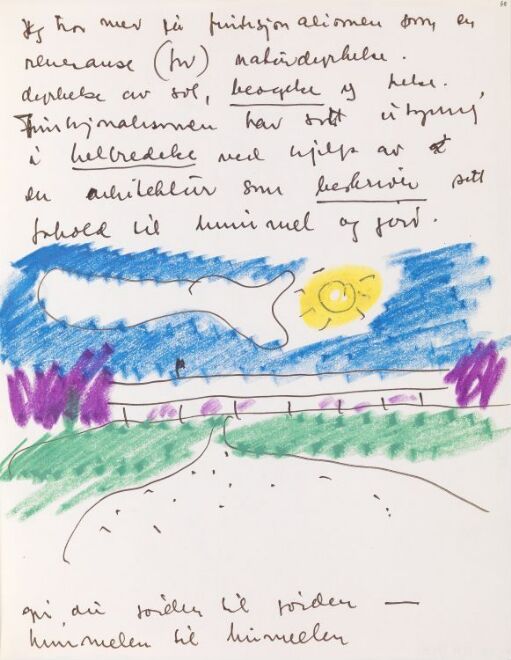 Jeg tror mer på funksjonalismen som en
reveranse (for) naturdyrkelse.
dyrkelse av sol, bevegelse og helse.
Funksjonalismen har sitt utspring
i helbredelse ved hjelp av
en arkitektur som beskriver sitt
forhold til himmel og jord.
gi du jorden til jorden —
himmelen til himmelen